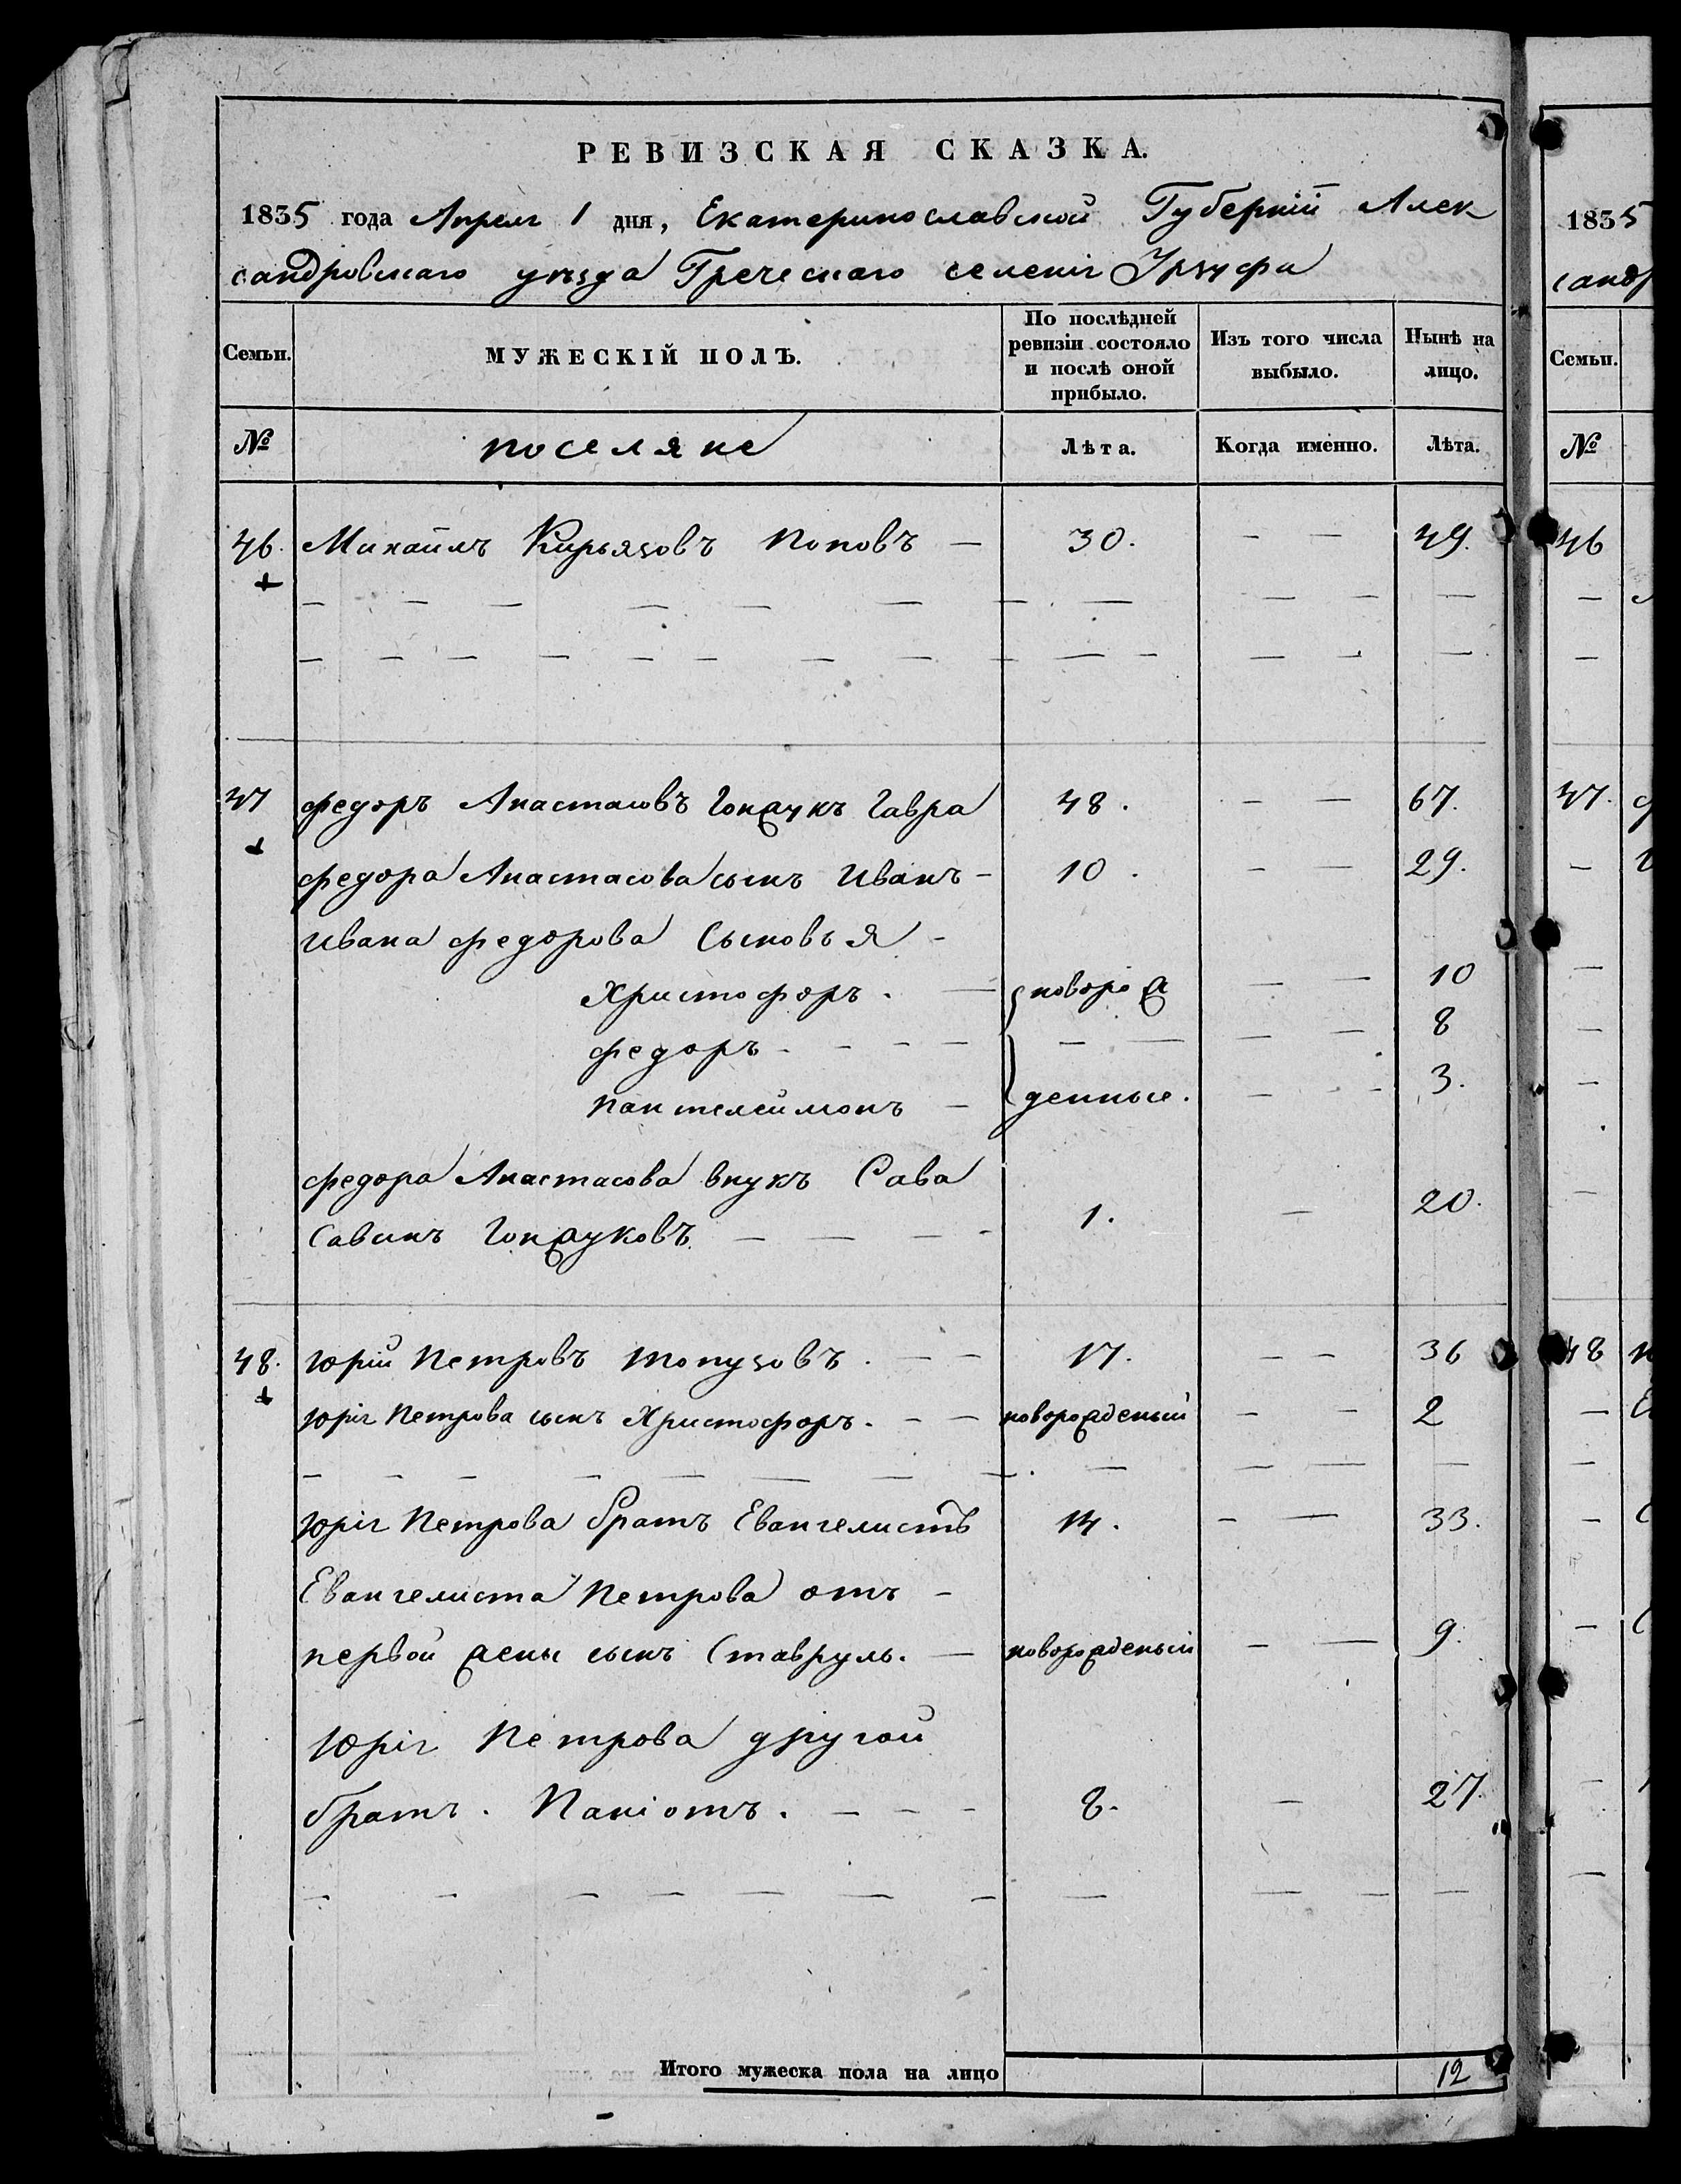 РЕВИЗСКАЯ СКАЗКА.
1835 года Апреля 1 дня, Екатеринославской Губерніи Алек
сандровскаго уѣзда Греческаго селенія Урзуфа
Семьи. МУЖЕСКІЙ ПОЛЪ. По послѣдней ревизіи состояло и послѣ оной прибыло. Изъ того числа выбыло. Нынѣ на лицо.
№ поселяне Лѣта. Когда именно. Лѣта.
46. Михаилъ Кирьязовъ Поповъ — 30. — — 49.
47 федоръ Анастасовъ Гонжукъ Гавра 48. — — 67.
федора Анастасова сынъ Иванъ - 10. — — 29.
Ивана федорова Сыновья -
Христофоръ. — новорож — — 10
федоръ - - - — — — — — 8
Пантелеймонъ — денные. — - 3.
федора Анастасова внукъ Сава
Савинъ Гонжуковъ — — — - 1. — 20.
48. Юрій Петровъ Топузовъ. — — 17. — — 36
Юрія Петрова сынъ Христофоръ. - — новорожденый — — 2
Юрія Петрова братъ Евангелистъ 14. - — 33.
Евангелиста Петрова отъ -
первой жены сынъ Ставруль. — новорожденый - — 9.
Юрія Петрова другой
братъ. Паніотъ. - - - 8. — 27.
Итого мужеска пола на лицо 12
1835
сандр
Семьи.
№
46
47.
48